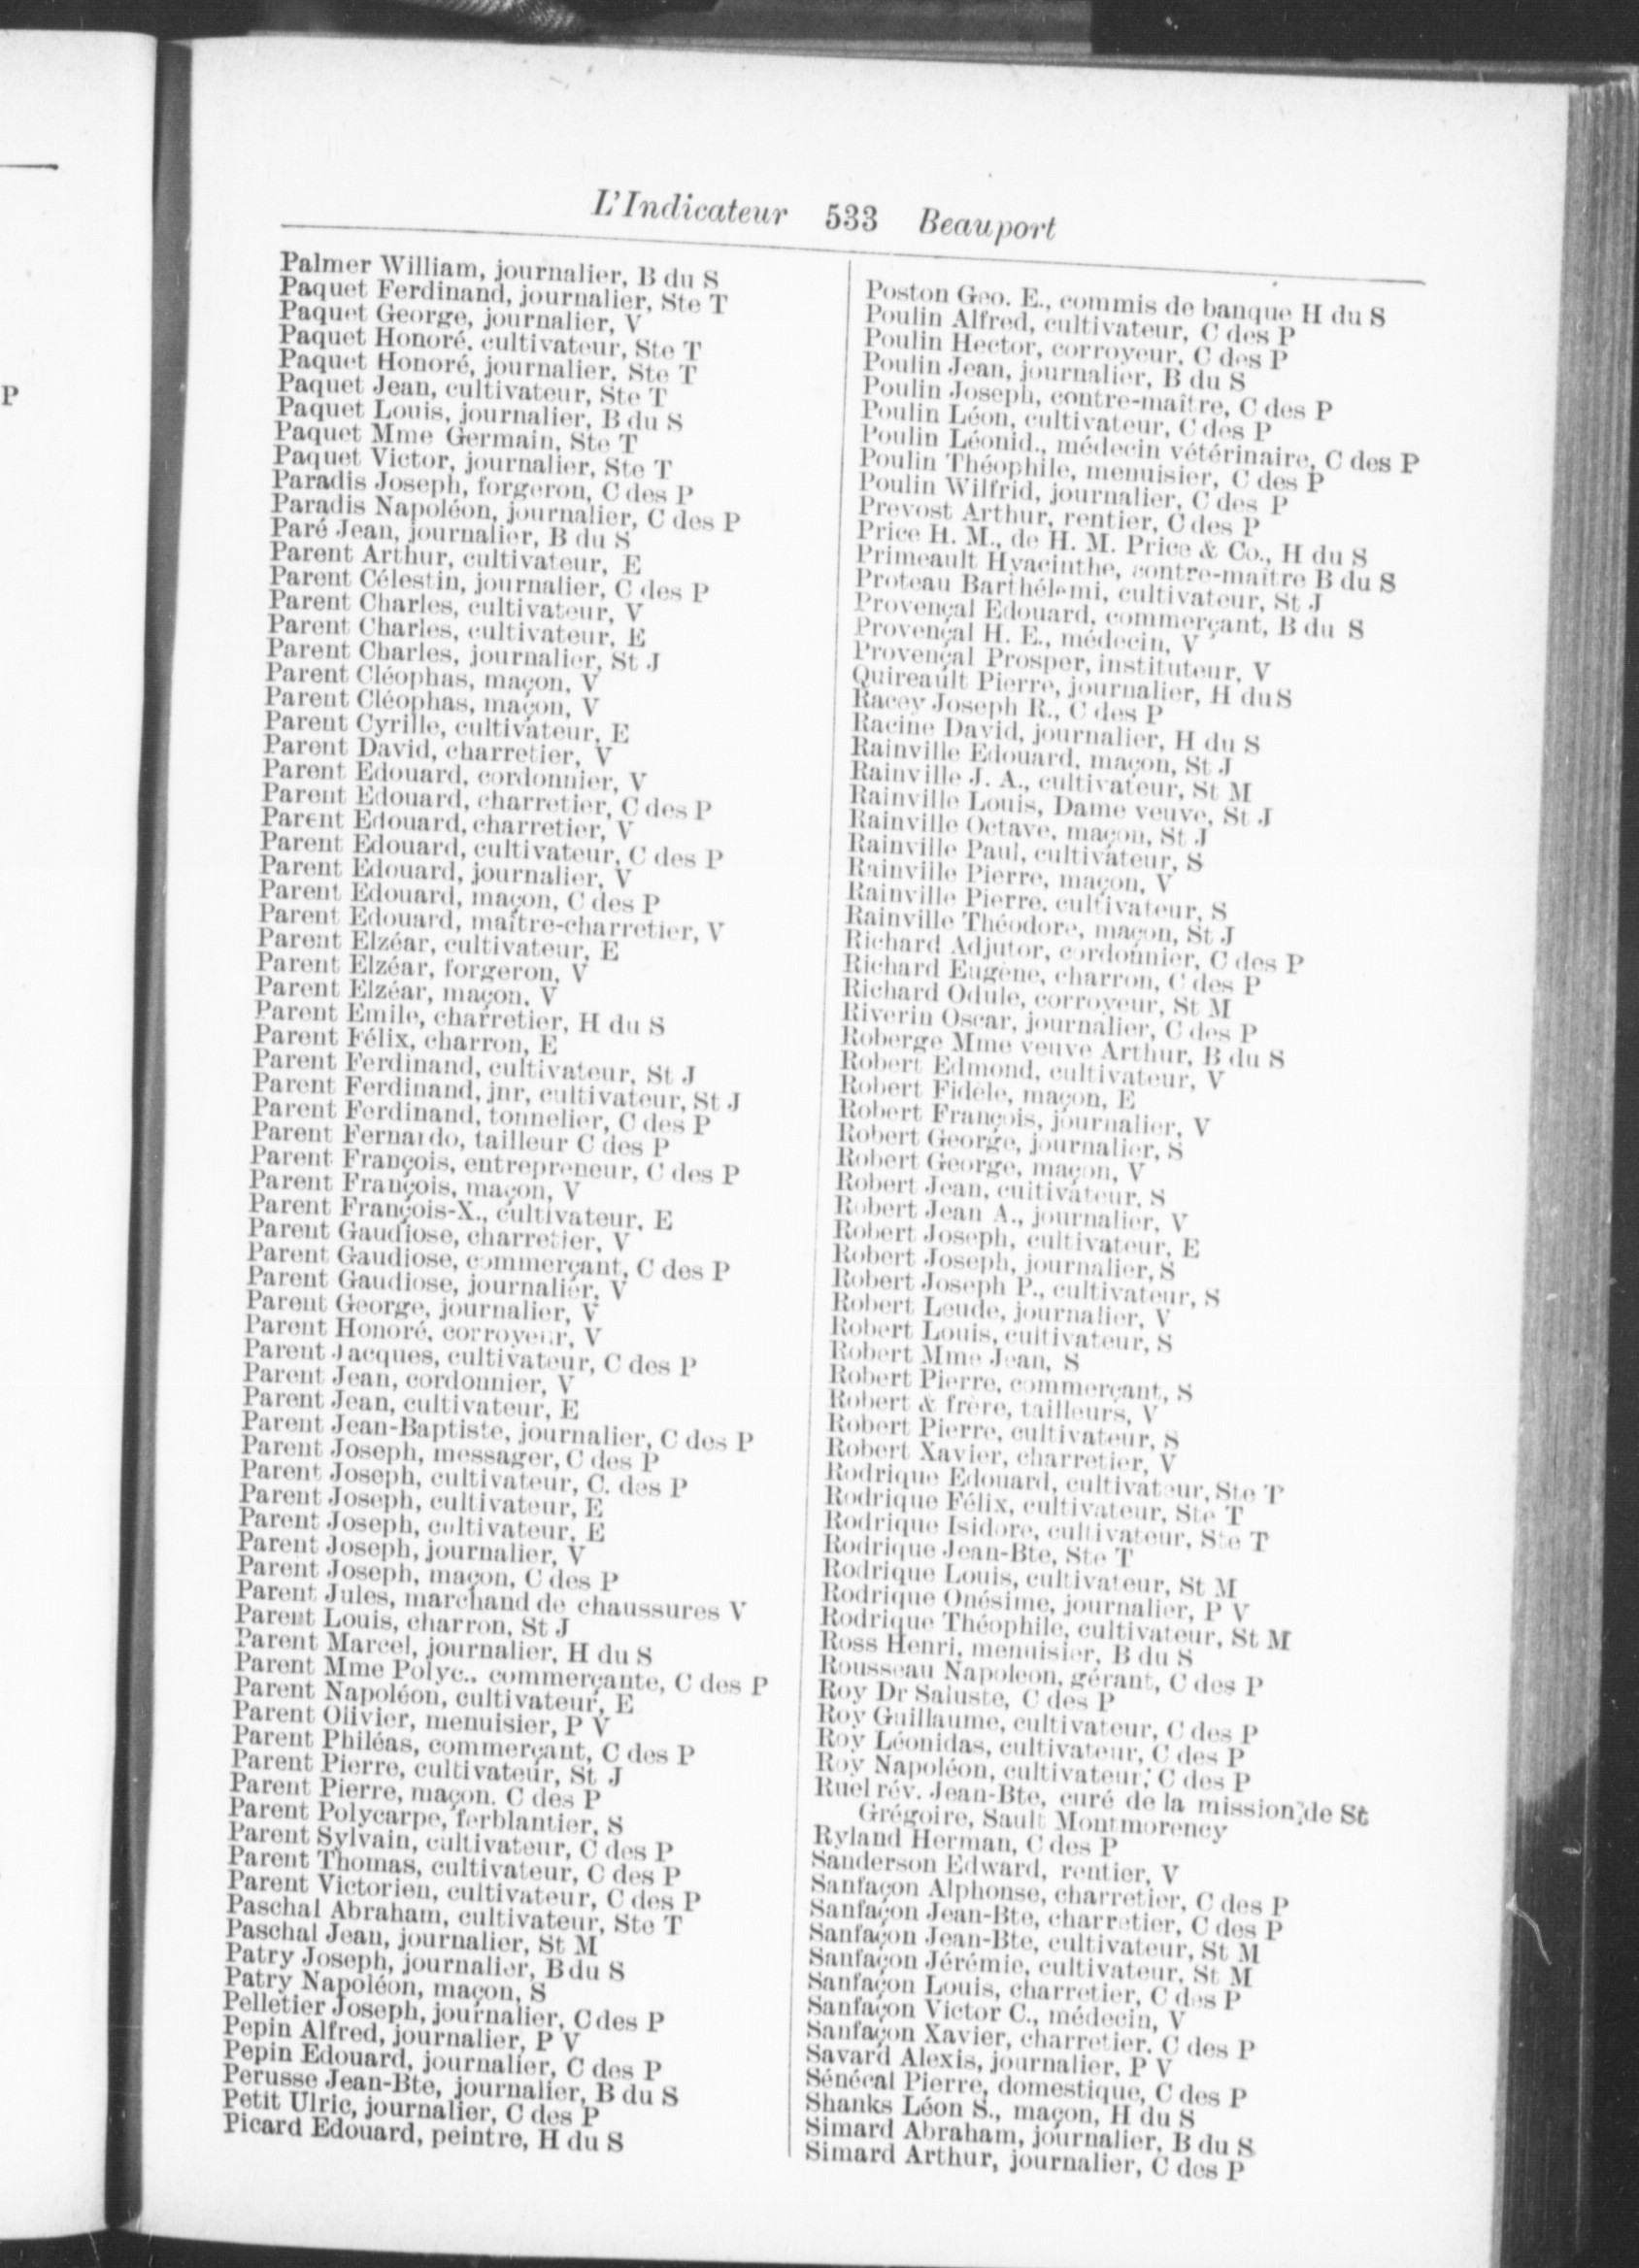 P
L'Indicateur 533 Beauport
Palmer William, journalier, B du S
Paquet Ferdinand, journalier, Ste T
Paquet George, journalier, V
Paquet Honoré, cultivateur, Ste T
Paquet Honoré, journalier, Ste T
Paquet Jean, cultivateur, Ste T
Paquet Louis, journalier, B du S
Paquet Mme Germain, Ste T
Paquet Victor, journalier, Ste T
Paradis Joseph, forgeron, C des P
Paradis Napoléon, journalier, C des P
Paré Jean, journalier, B du S
Parent Arthur, cultivateur, E
Parent Célestin, journalier, C des P
Parent Charles, cultivateur, V
Parent Charles, cultivateur, E
Parent Charles, journalier, St J
Parent Cléophas, maçon, V
Parent Cléophas, maçon, V
Parent Cyrille, cultivateur, E
Parent David, charretier, V
Parent Edouard, cordonnier, V
Parent Edouard, charretier, C des P
Parent Edouard, charretier, V
Parent Edouard, cultivateur, C des P
Parent Edouard, journalier, V
Parent Edouard, maçon, C des P
Parent Edouard, maître-charretier, V
Parent Elzéar, cultivateur, E
Parent Elzéar, forgeron, V
Parent Elzéar, maçon, V
Parent Emile, charretier, H du S
Parent Félix, charron, E
Parent Ferdinand, cultivateur, St J
Parent Ferdinand, jnr, cultivateur, St J
Parent Ferdinand, tonnelier, C des P
Parent Fernando, tailleur C des P
Parent François, entrepreneur, C des P
Parent François, maçon, V
Parent François-X., cultivateur, E
Parent Gaudiose, charretier, V
Parent Gaudiose, commerçant, C des P
Parent Gaudiose, journalier, V
Parent George, journalier, V
Parent Honoré, corroyeur, V
Parent Jacques, cultivateur, C des P
Parent Jean, cordonnier, V
Parent Jean, cultivateur, E
Parent Jean-Baptiste, journalier, C des P
Parent Joseph, messager, C des P
Parent Joseph, cultivateur, C. des P
Parent Joseph, cultivateur, E
Parent Joseph, cultivateur, E
Parent Joseph, journalier, V
Parent Joseph, maçon, C des P
Parent Jules, marchand de chaussures V
Parent Louis, charron, St J
Parent Marcel, journalier, H du S
Parent Mme Polyc., commerçante, C des P
Parent Napoléon, cultivateur, E
Parent Olivier, menuisier, P V
Parent Philéas, commerçant, C des P
Parent Pierre, cultivateur, St J
Parent Pierre, maçon. C des P
Parent Polycarpe, ferblantier, S
Parent Sylvain, cultivateur, C des P
Parent Thomas, cultivateur, C des P
Parent Victorien, cultivateur, C des P
Paschal Abraham, cultivateur, Ste T
Paschal Jean, journalier, St M
Patry Joseph, journalier, B du S
Patry Napoléon, maçon, S
Pelletier Joseph, journalier, C des P
Pepin Alfred, journalier, P V
Pepin Edouard, journalier, C des P
Perusse Jean-Bte, journalier, B du S
Petit Ulric, journalier, C des P
Picard Edouard, peintre, H du S
Poston Geo. E., commis de banque H du S
Poulin Alfred, cultivateur, C des P
Poulin Hector, corroyeur, C des P
Poulin Jean, journalier, B du S
Poulin Joseph, contre-maître, C des P
Poulin Léon, cultivateur, C des P
Poulin Léonid., médecin vétérinaire, C des P
Poulin Théophile, menuisier, C des P
Poulin Wilfrid, journalier, C des P
Prevost Arthur, rentier, C des P
Price H. M., de H. M. Price & Co., H du S
Primeault Hyacinthe, contre-maître B du S
Proteau Barthélemi, cultivateur, St J
Provençal Edouard, commerçant, B du S
Provençal H. E., médecin, V
Provençal Prosper, instituteur, V
Quireault Pierre, journalier, H du S
Racey Joseph R., C des P
Racine David, journalier, H du S
Rainville Edouard, maçon, St J
Rainville J. A., cultivateur, St M
Rainville Louis, Dame veuve, St J
Rainville Octave, maçon, St J
Rainville Paul, cultivateur, S
Rainville Pierre, maçon, V
Rainville Pierre, cultivateur, S
Rainville Théodore, maçon, St J
Richard Adjutor, cordonnier, C des P
Richard Eugène, charron, C des P
Richard Odule, corroyeur, St M
Riverin Oscar, journalier, C des P
Roberge Mme veuve Arthur, B du S
Robert Edmond, cultivateur, V
Robert Fidèle, maçon, E
Robert François, journalier, V
Robert George, journalier, S
Robert George, maçon, V
Robert Jean, cultivateur, S
Robert Jean A., journalier, V
Robert Joseph, cultivateur, E
Robert Joseph, journalier, S
Robert Joseph P., cultivateur, S
Robert Leude, journalier, V
Robert Louis, cultivateur, S
Robert Mme Jean, S
Robert Pierre, commerçant, S
Robert & frère, tailleurs, V
Robert Pierre, cultivateur, S
Robert Xavier, charretier, V
Rodrique Edouard, cultivateur, Ste T
Rodrique Félix, cultivateur, Ste T
Rodrique Isidore, cultivateur, Ste T
Rodrique Jean-Bte, Ste T
Rodrique Louis, cultivateur, St M
Rodrique Onésime, journalier, P V
Rodrique Théophile, cultivateur, St M
Ross Henri, menuisier, B du S
Rousseau Napoleon, gérant, C des P
Roy Dr Saluste, C des P
Roy Guillaume, cultivateur, C des P
Roy Léonidas, cultivateur, C des P
Roy Napoléon, cultivateur, C des P
Ruel rév. Jean-Bte, curé de la mission, de St
Grégoire, Sault Montmorency
Ryland Herman, C des P
Sanderson Edward, rentier, V
Sanfaçon Alphonse, charretier, C des P
Sanfaçon Jean-Bte, charretier, C des P
Sanfaçon Jean-Bte, cultivateur, St M
Sanfaçon Jérémie, cultivateur, St M
Sanfaçon Louis, charretier, C des P
Sanfaçon Victor C., médecin, V
Sanfaçon Xavier, charretier, C des P
Savard Alexis, journalier, P V
Sénécal Pierre, domestique, C des P
Shanks Léon S., maçon, H du S
Simard Abraham, journalier, B du S
Simard Arthur, journalier, C des P